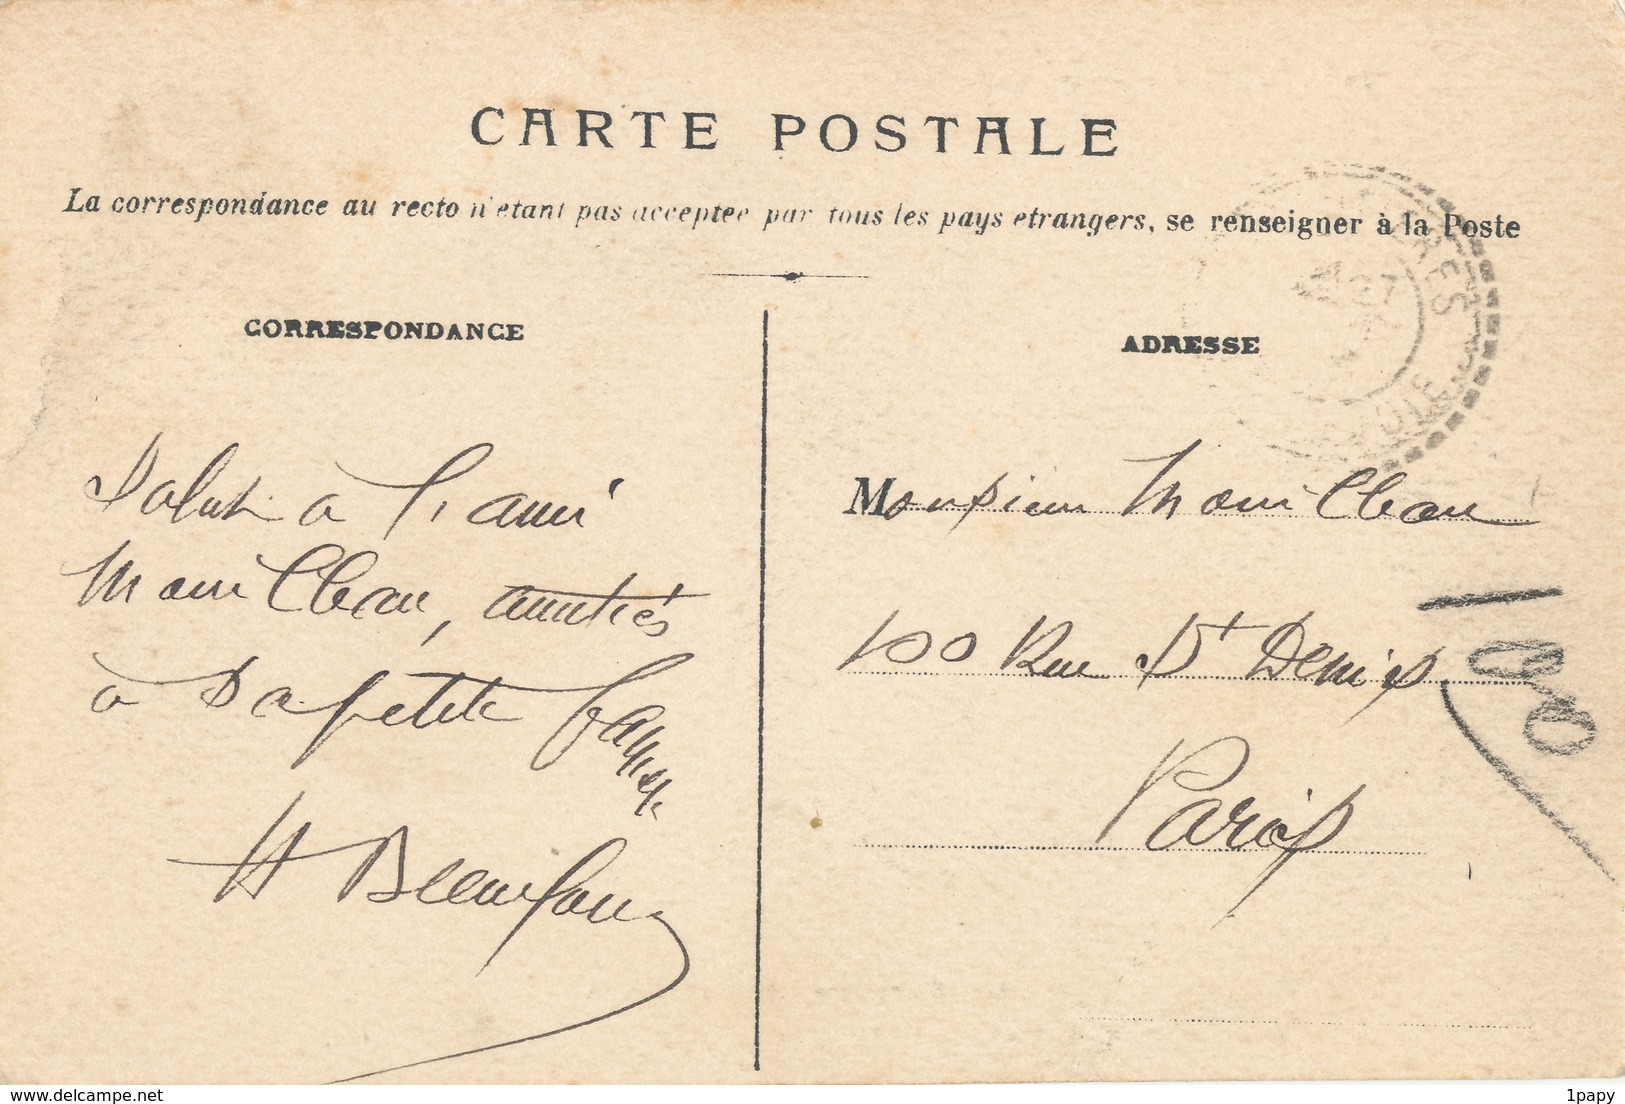 CARTE POSTALE
La correspondance au recto n'étant pas acceptée par tous les pays étrangers, se renseigner à la Poste
CORRESPONDANCE
Salut à l'ami
amitiés
à sa petite famille
H
ADRESSE
Monsieur
100 Rue St Denis
Paris
delcampe.net
1papy